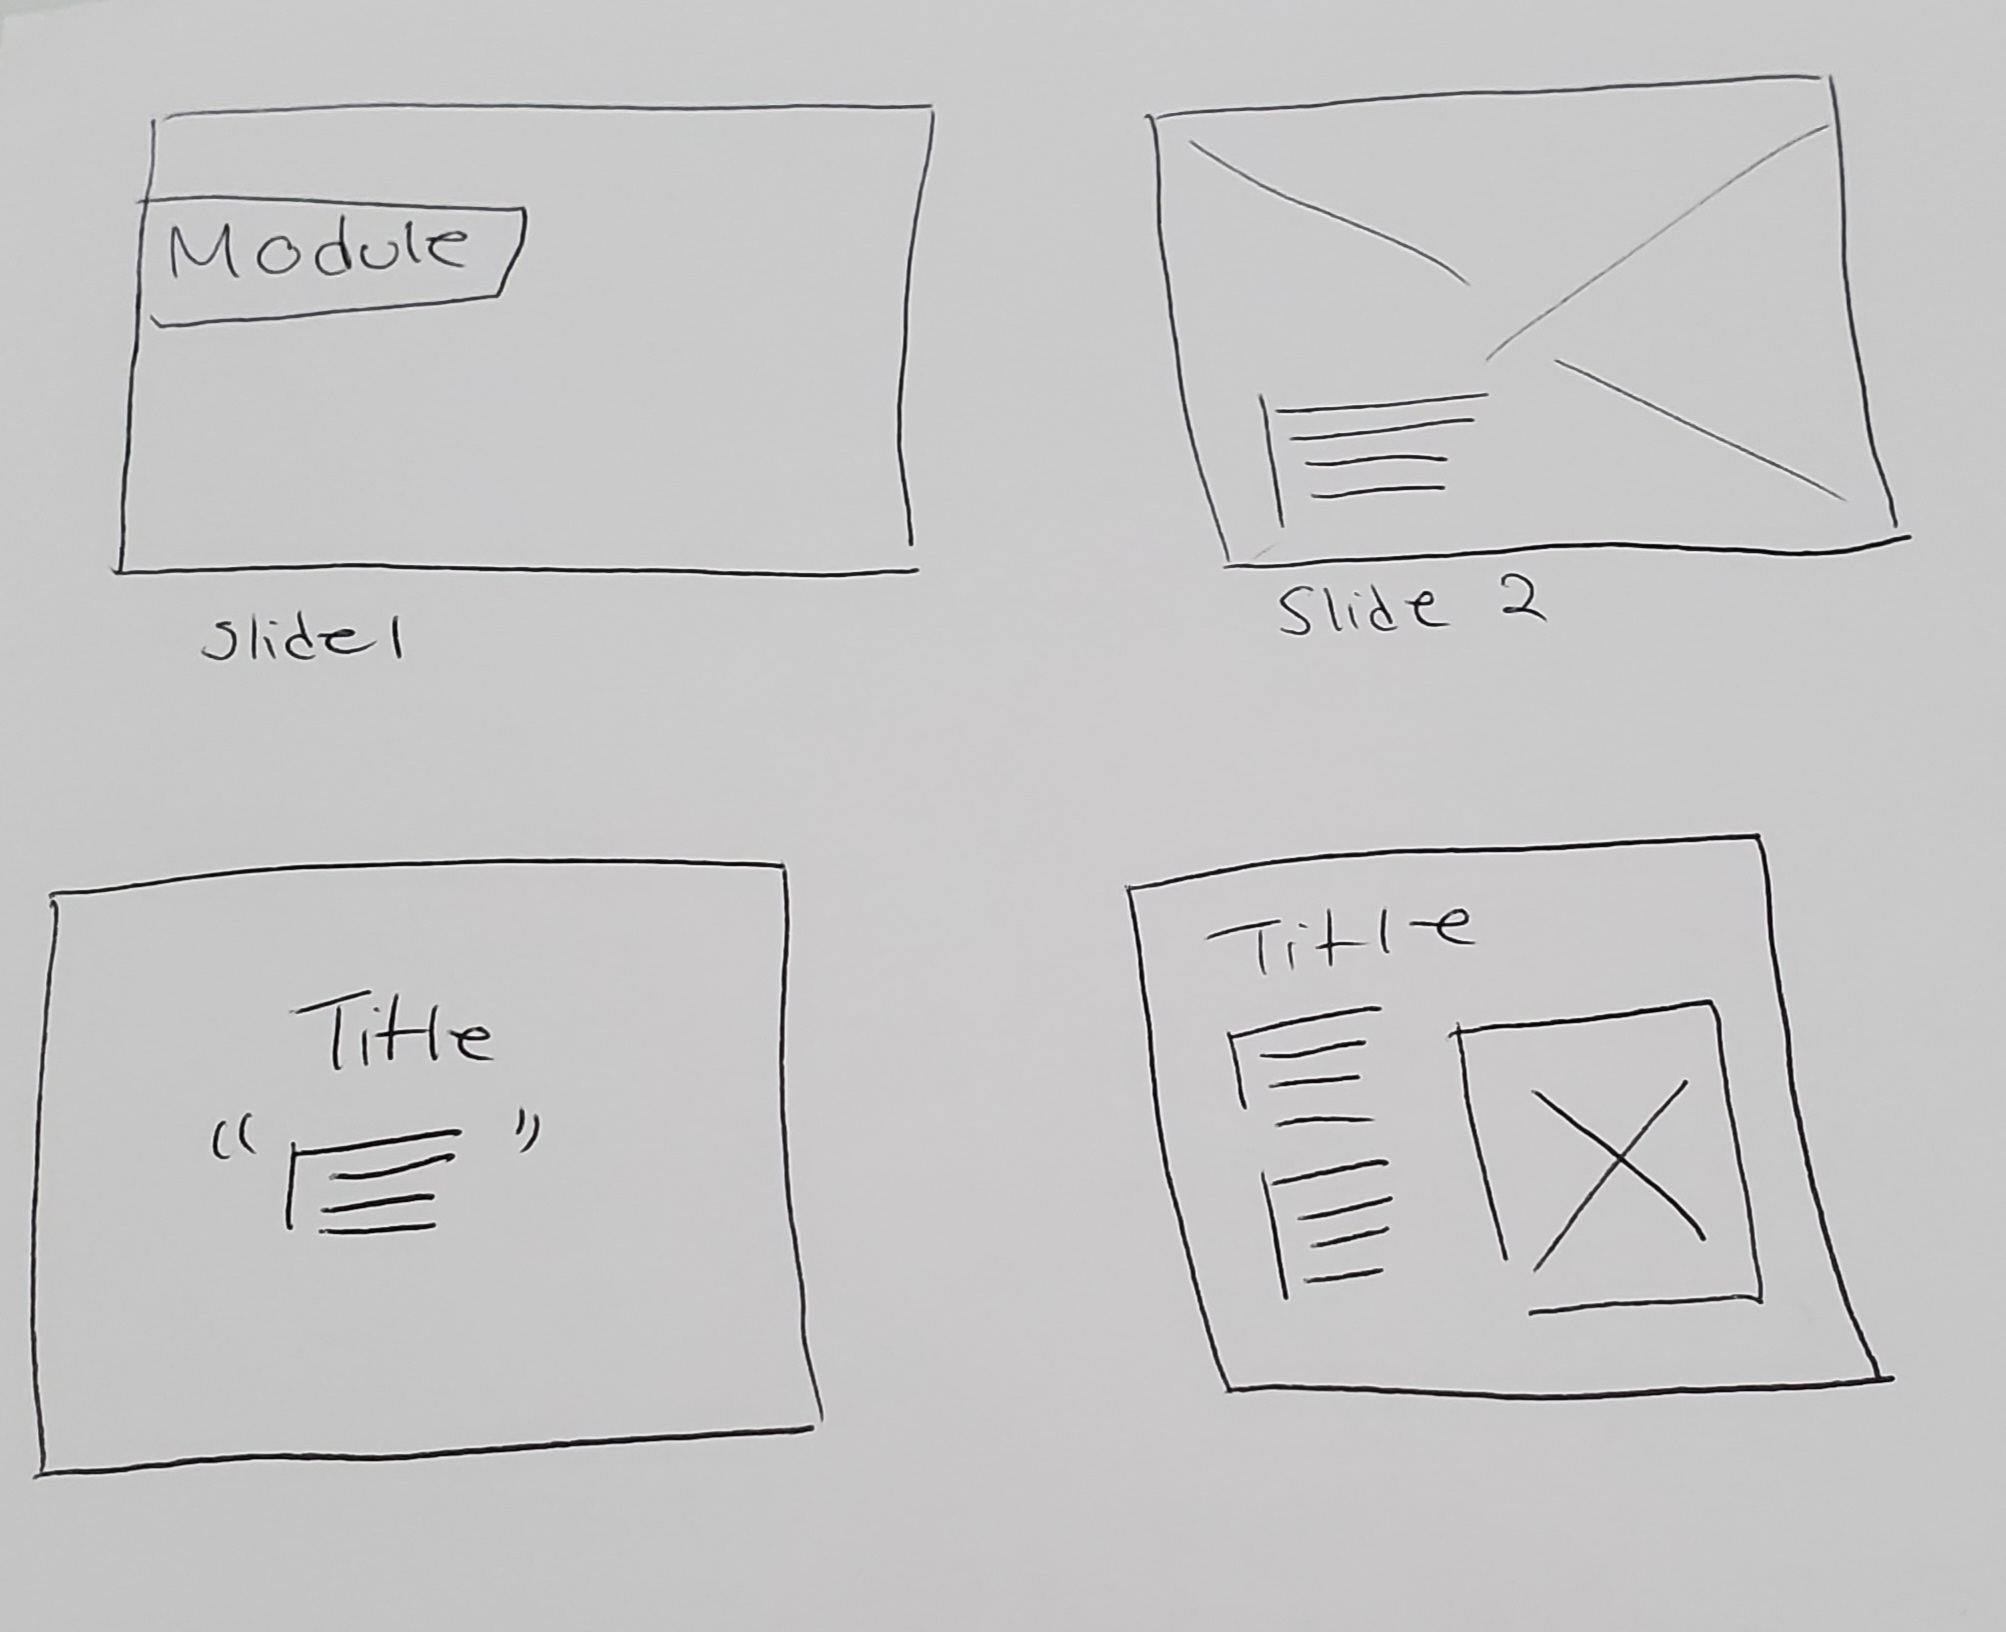 Module
Slide 1
Slide 2
Title
“ ”
Title